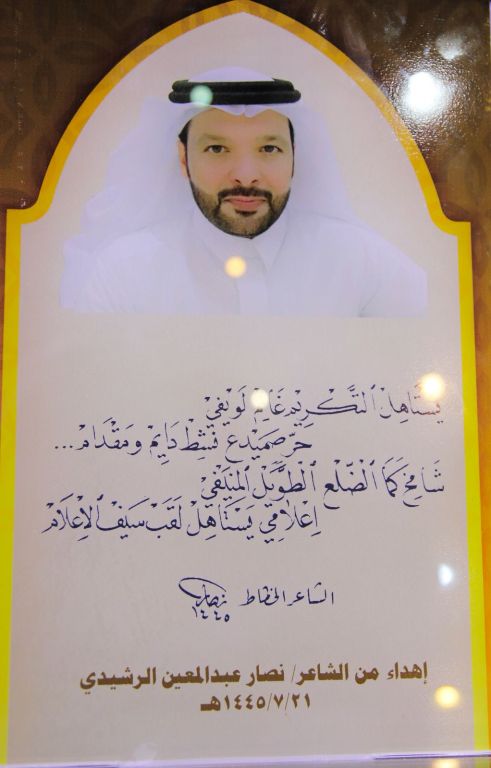 يَسْتَاهِلْ التَّكْرِيمْ غَانِمْ لَوَيْفِي
حرّ صميدع نشِطْ دَايِمْ ومَقْدَامْ...
شَامِخ كَمَا الضّلْع الْطّوَيلْ الْمِنِيفِي
اِعْلَامِي يَسْتَاهِلْ لَقَبْ سَيفْ الْاِعْلَامْ
الشاعر الخطاط نصار
١٤٤٥
إهداء من الشاعر/ نصار عبدالمعين الرشيدي
١٤٤٥/٧/٢١هـ